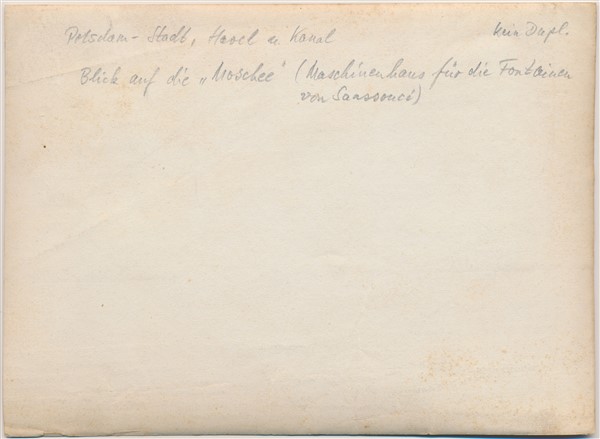 Potsdam - Stadt, Havel u. Kanal
Kein Dupl.
Blick auf die „Moschee" (Maschinenhaus für die Fontainen
von Sanssouci)